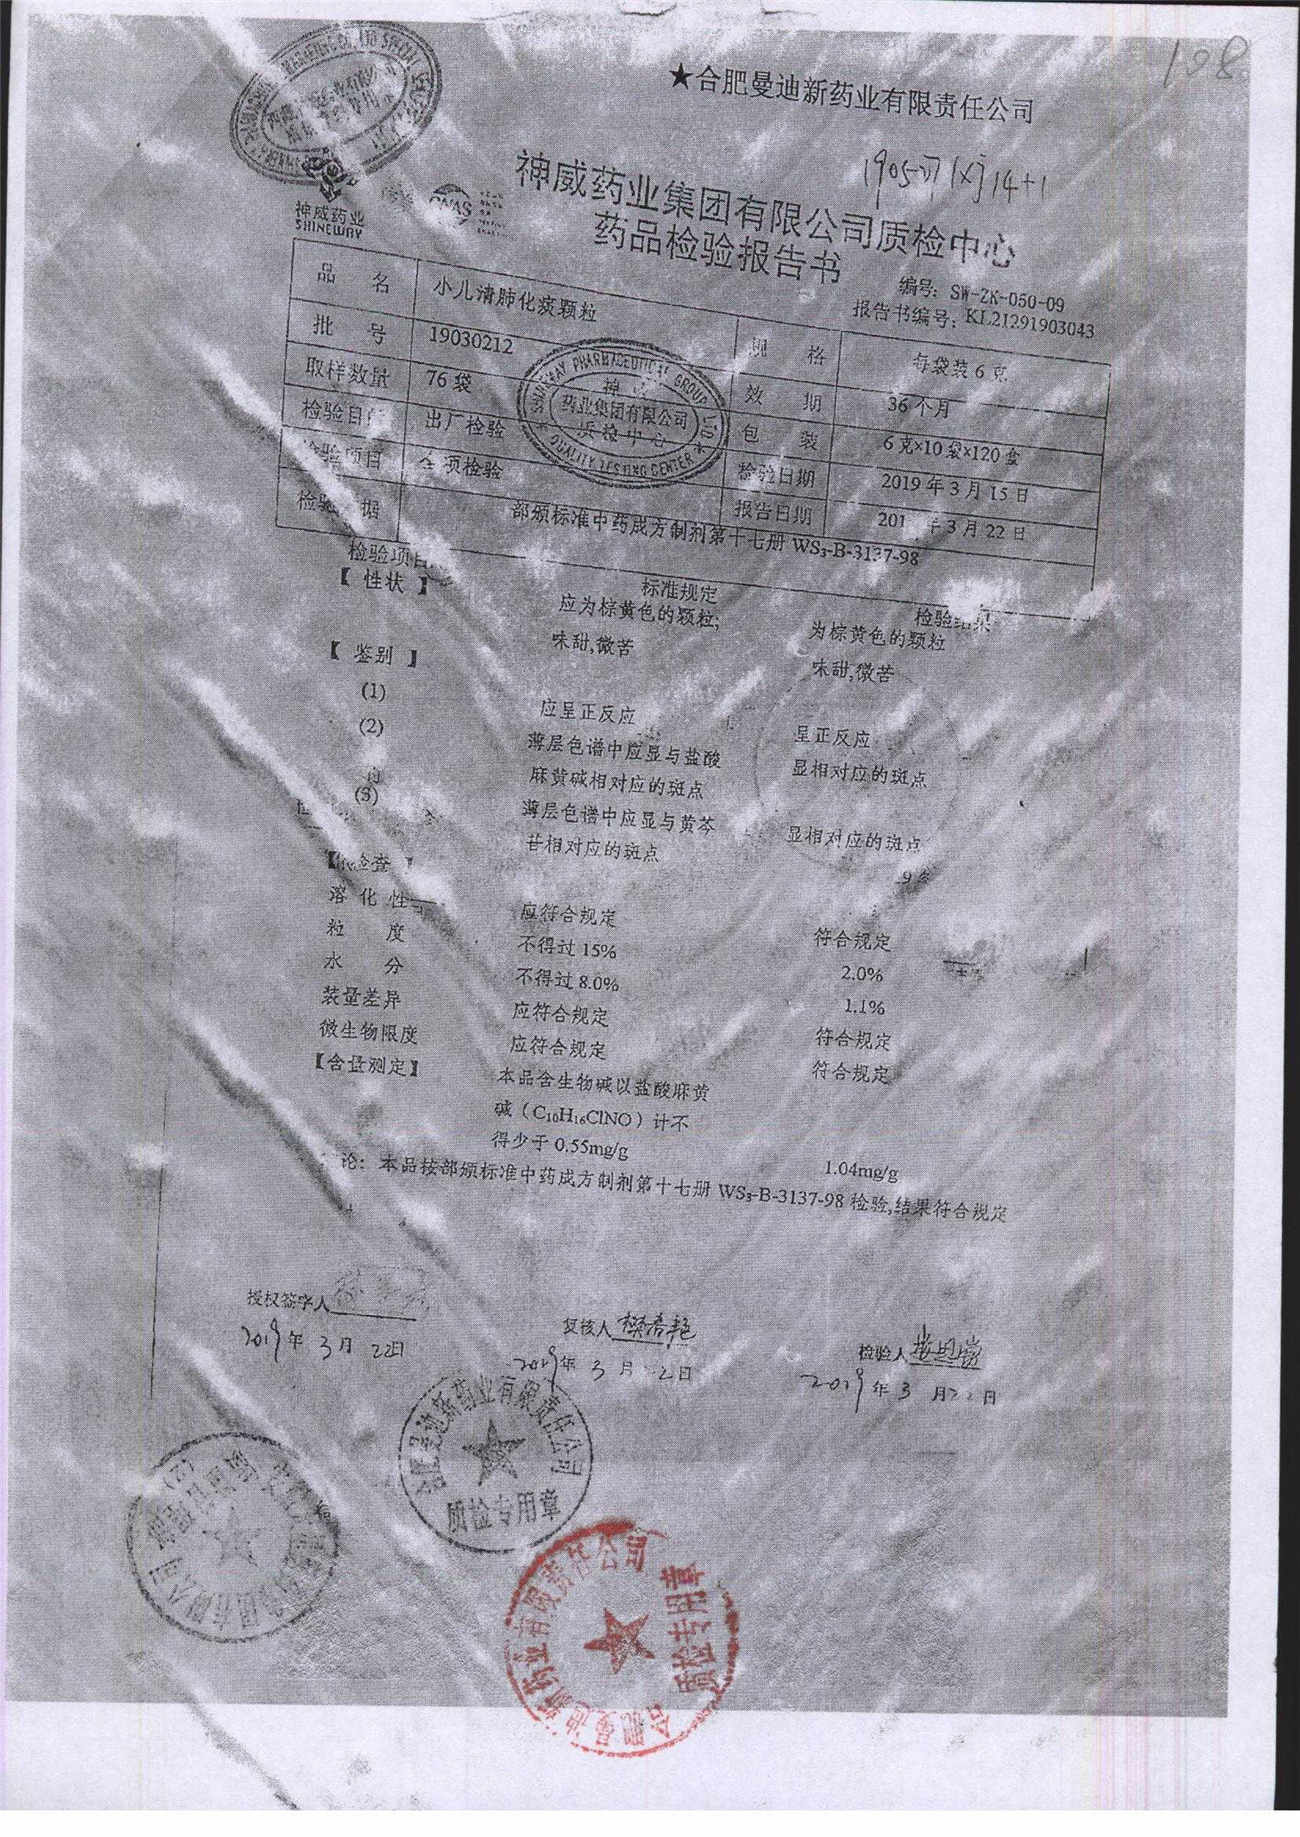 108
★合肥曼迪新药业有限责任公司
神威药业
SHINEWAY
CNAS
神威药业集团有限公司质检中心
药品检验报告书
编号：SW-ZK-050-09
报告书编号：KL21291903043
品 名 小儿清肺化痰颗粒 规 格 每袋装 6 克
批 号 19030212 效 期 36 个月
取样数量 76 袋 包 装 6 克×10 袋×120 盒
检验目 出厂检验 检验日期 2019 年 3 月 15 日
检验项目 全项检验 报告日期 201 年 3 月 22 日
检验 据 部颁标准中药成方制剂第十七册 WS₃-B-3137-98
SHINEWAY PHARMACEUTICAL GROUP LTD
药业集团有限公司
质检中心
QUALITY TESTING CENTER
检验项目 标准规定 检验结果
【 性状 】 应为棕黄色的颗粒; 为棕黄色的颗粒
味甜,微苦 味甜,微苦
【 鉴别 】
(1) 应呈正反应 呈正反应
(2) 薄层色谱中应显与盐酸 显相对应的斑点
麻黄碱相对应的斑点
(3) 薄层色谱中应显与黄芩 显相对应的斑点
苷相对应的斑点
检查
溶 化 性 应符合规定 符合规定
粒 度 不得过 15% 2.0%
水 分 不得过 8.0% 1.1%
装量差异 应符合规定 符合规定
微生物限度 应符合规定 符合规定
【含量测定】 本品含生物碱以盐酸麻黄
碱（C₁₀H₁₆ClNO）计不
得少于 0.55mg/g 1.04mg/g
论：本品按部颁标准中药成方制剂第十七册 WS₃-B-3137-98 检验,结果符合规定
授权签字人 复核人 检验人
2019年 3月 22日 2019年 3 月 2日 2019年3 月22日
合肥曼迪新药业有限责任公司
质检专用章
合肥曼迪新药业有限责任公司
质检专用章